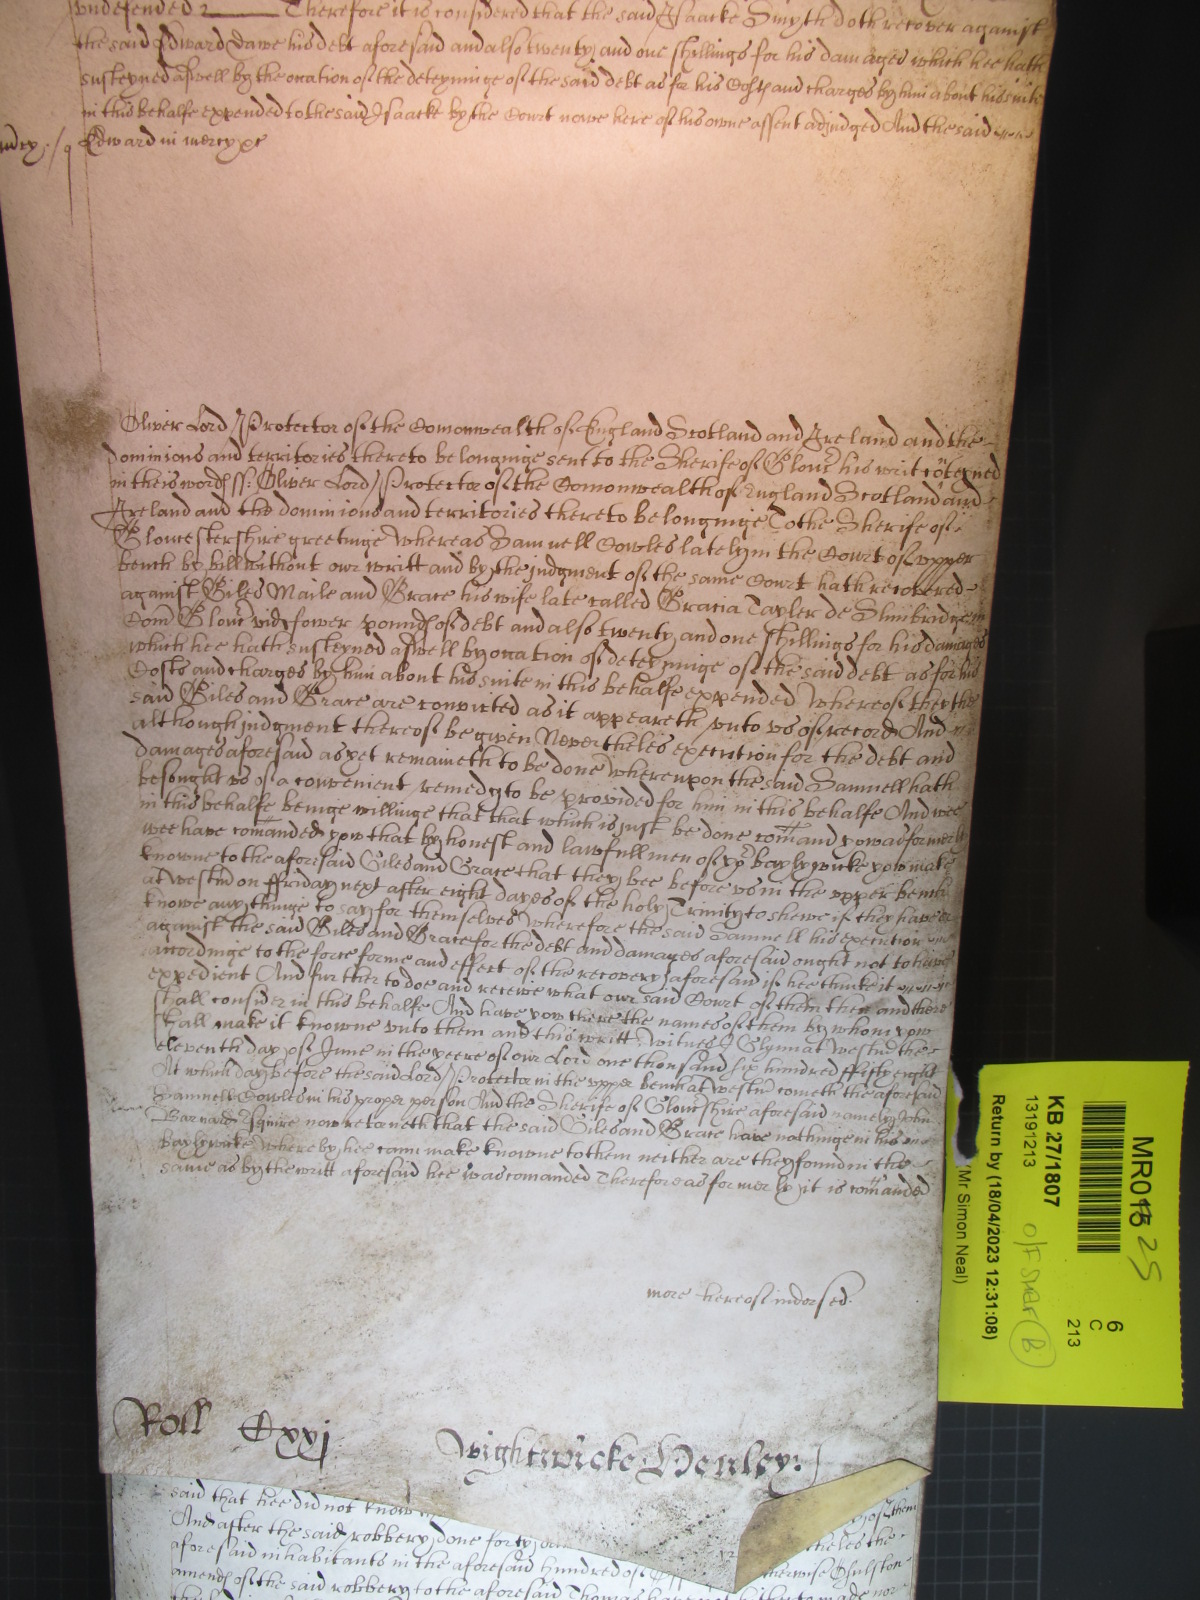 undefended Therefore it is considered that the said Isaacke Smyth doth recover against
the said Edward Dawe his debt aforesaid and also twenty and one shillings for his damages which hee hath
susteyned aswell by the occation of the deteyninge of the said debt as for his Costs and charges by him about his suite
in this behalfe expended to the said Isaacke by the Court nowe here of his owne assent adjudged And the said
Edward in mercy &c
Oliver Lord Protector of the Comonwealth of England Scotland and Ireland and the
dominions and territories thereto belonginge sent to the Sherife of Glouc his writ closed
in theis words ss: Oliver Lord Protector of the Comonwealth of England Scotland and
Ireland and the dominions and territories thereto belonginge To the Sherife of
Gloucestershire greetinge Whereas Samuell Cowles lately in the Court of upper
bench by bill without our writt and by the judgment of the same Court hath recovered
against Giles Maile and Grace his wife late called Gracia Tayler de Slimbridge in
Com Glouc vid fower pounds of debt and also twenty and one shillings for his damages
which hee hath susteyned aswell by occation of deteyninge of the said debt as for his
Costs and charges by him about his suite in this behalfe expended Whereof they the
said Giles and Grace are convicted as it appeareth unto us of record And
although judgment thereof be given Nevertheles execution for the debt and
damages aforesaid as yet remaineth to be done Whereupon the said Samuell hath
besought us of a convenient remedy to be provided for him in this behalfe And wee
in this behalfe beinge willinge that that which is just be done comand yow as formerly
wee have comanded yow that by honest and lawfull men of yor Baylywicke yow make
knowne to the aforesaid Giles and Grace that they bee before us in the upper bench
at Westm on ffriday next after eight dayes of the holy Trinity to shewe if they have or
knowe any thinge to say for themselves Wherefore the said Samuell his execution
against the said Giles and Grace for the debt and damages aforesaid ought not to have
accordinge to the force forme and effect of the recovery aforesaid if hee thinke it
expedient And further to doe and receive what our said Court of them then and there
shall consider in this behalfe And have yow there the names of them by whom yow
shall make it knowne unto them and this writt Witnes J Glynn at Westm the
eleventh day of June in the yeere of our Lord one thousand six hundred ffifty eight
At which day before the said Lord Protector in the upper bench at Westm cometh the aforesaid
Samuell Cowles in his proper person And the Sherife of Gloucshire aforesaid namely John
Barnard Esquire now retorneth that the said Giles and Grace have nothinge in his
Baylywicke Whereby hee cann make knowne to them neither are they found in the
same as by the writt aforesaid hee was comanded Therefore as formerly it is comanded
more thereof indorsed
Roll Cxxj
Wightwicke Henley:
said that hee did not know
And after the said robbery done forty
aforesaid inhabitants in the aforesaid hundred of
amends of the said robbery to the aforesaid Thomas have not hitherto made nor
MR018 25
6
C
213
KB 27/1807
13919213
Return by (18/04/2023 12:31:08)
(Mr Simon Neal)